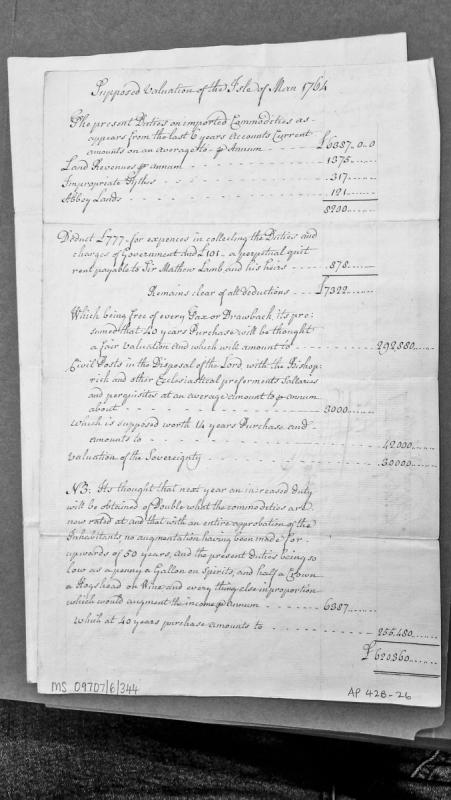 Supposed Valuation of the Isle of Man 1764
The present Duties on imported Commodities as
appears from the last 6 years Accounts Current
amounts on an average to p Annum - - - - £6387..0..0
Land Revenues p annum - - - - 1375......
Impropriate Tythes - - - - 317......
Abbey Lands - - - - 121......
8200......
Deduct £777. for expences in collecting the Duties and
charges of Government and £101 - a perpetual quit
rent payable to Sir Mathew Lamb and his heirs - - - 878......
Remains clear of all deductions - - - £7322......
Which being free of every Tax or Drawback, its pre:
sumed that 40 years Purchase will be thought
a fair valuation and which will amount to - - - - 292880......
Civil Posts in the Disposal of the Lord with the Bishop:
rick and other Eclesiastical preferments Sallaries
and perquisites at an average amount to p annum
about - - - - 3000......
which is supposed worth 14 years Purchase and
amounts to - - - - 42000......
Valuation of the Sovereignty - - - - 30000......
NB: Its thought that next year an increased duty
will be obtained of Double what the commodities are
now rated at and that with an entire approbation of the
Inhabitants, no augmentation having been made for
upwards of 50 years, and the present duties being so
low as a penny a Gallon on Spirits, and half a Crown
a Hogshead on Wine and every thing else in proportion
which would augment the income p Annum - - - - 6387......
Which at 40 years purchase amounts to - - - - 255,480......
£620360......
MS 09707/6/344
AP 428-26